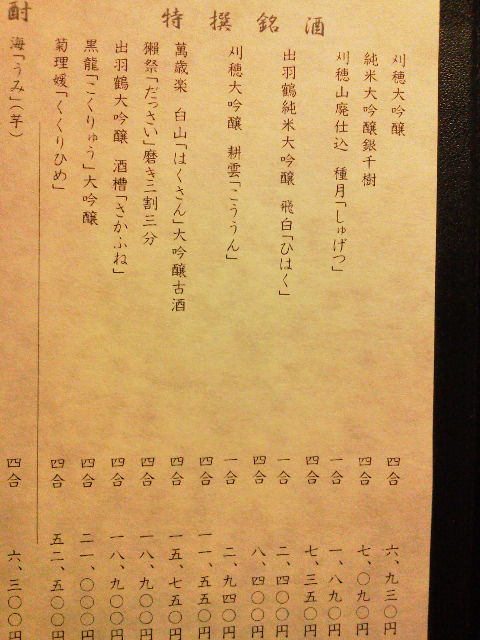 特撰銘酒
刈穂大吟醸 四合 六、九三〇円
純米大吟醸銀千樹 四合 七、〇九〇円
刈穂山廃仕込 種月「しゅげつ」 一合 一、八九〇円
四合 七、三五〇円
出羽鶴純米大吟醸 飛白「ひはく」 一合 二、四〇〇円
四合 八、四〇〇円
刈穂大吟醸 耕雲「こううん」 一合 二、九四〇円
四合 一一、五五〇円
萬歳楽 白山「はくさん」大吟醸古酒 四合 一五、七五〇円
獺祭「だっさい」磨き三割三分 四合 一八、九〇〇円
出羽鶴大吟醸 酒槽「さかふね」 四合 一八、九〇〇円
黒龍「こくりゅう」大吟醸 四合 二一、〇〇〇円
菊理媛「くくりひめ」 四合 五二、五〇〇円
酎
海「うみ」(芋) 四合 六、三〇〇円